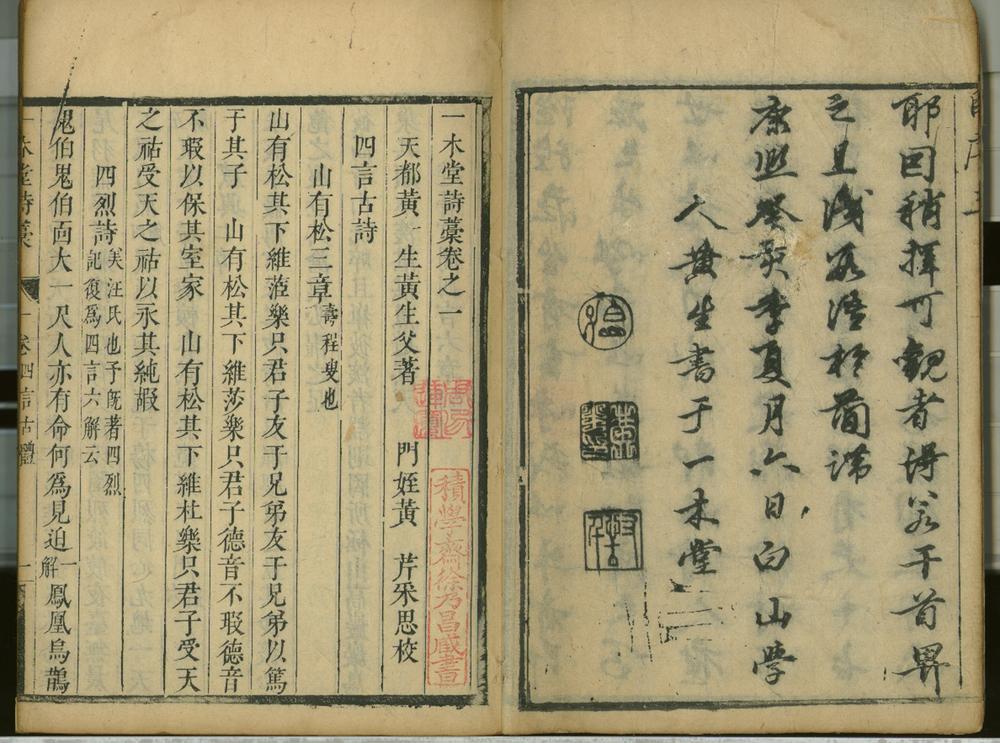 耶因稍擇可觀者得若干首畀
之且淺爲語於簡端
康熙癸亥季夏月六日白山學
人黄生書于一木堂
一木堂詩藁卷之一
天都黄 生黄生父著
門姪黄 芹采思校
積學齋徐乃昌藏書
四言古詩
山有松三章
壽程叟也
山有松其下維蒞樂只君子友于兄弟友于兄弟以篤
于其子 山有松其下維莎樂只君子德音不瑕德音
不瑕以保其室家 山有松其下維杜樂只君子受天
之祜受天之祜以永其純嘏
四烈詩
美汪氏也予旣著四烈
記復爲四言六解云
鬼伯鬼伯面大一尺人亦有命何爲見迫
一解
鳳凰烏鵲
一木堂詩藁
卷一
四言古體
一